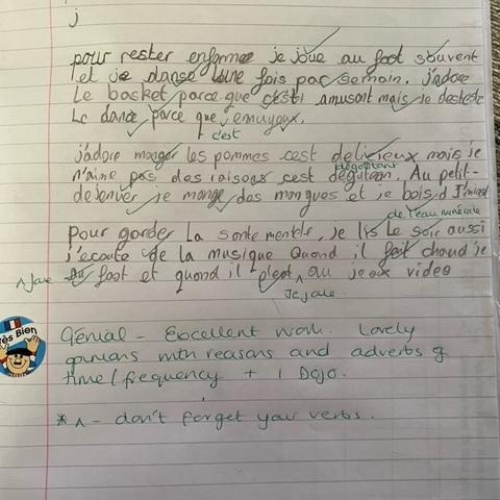 j
pour rester enforme je joue au foot souvent
et je danse une fois par semain. j'adore
Le basket parce que c'esti amusant mais je desteste
Le dance parce que ennuyaux.
c'est
j'adore manger les pommes cest delivieux mais je
n'aime pas des raisons cest degutean. Au petit-
dégoûtant
dejenver je mange des mangues et je bois d
de l'eau minérale
pour garder La sante mentale, je lis Le soir aussi
j'ecoute de la musique Quand il fait chaud je
^ faire foot et quand il pleot ^ au jeux video
Je joue
Très Bien
Génial - Excellent work. Lovely
opinions with reasons and adverbs of
time/frequency + 1 Dojo.
* ^ - don't forget your verbs.